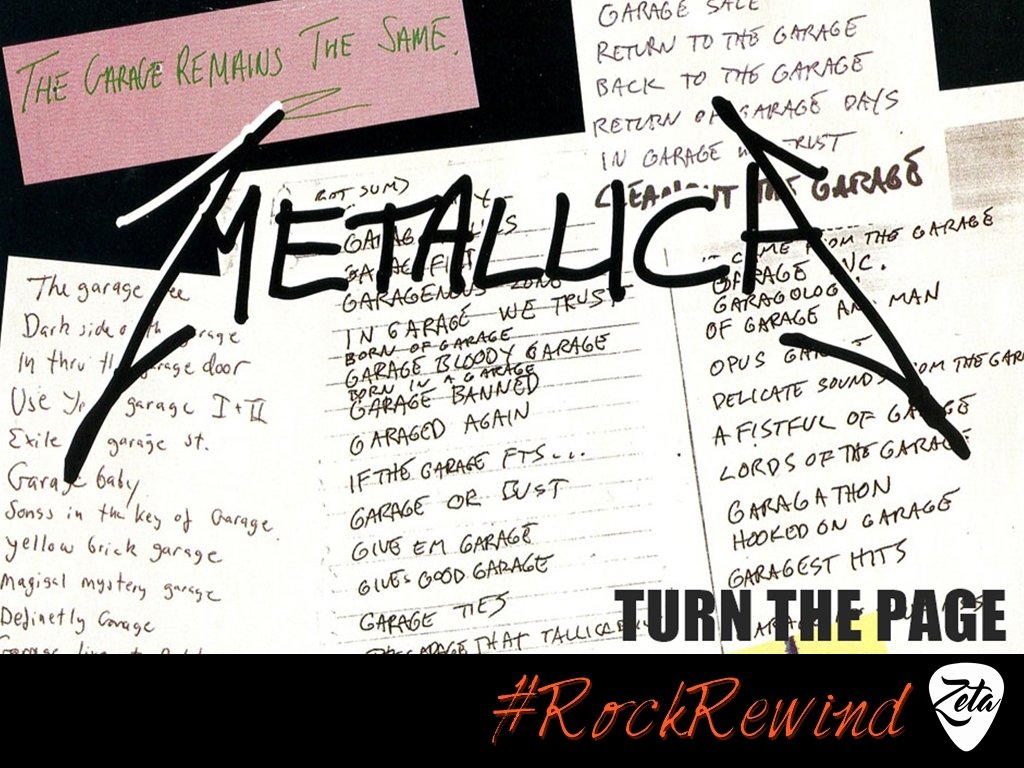 THE GARAGE REMAINS THE SAME.
GARAGE SALE
RETURN TO THE GARAGE
BACK TO THE GARAGE
RETURN OF GARAGE DAYS
IN GARAGE WE TRUST
CLEANOUT THE GARAGE
METALLICA
The garage
Dark side garage
In thru garage door
Use garage I + II
Exile garage st.
Garage baby
Songs in the key of Garage
yellow brick garage
Magical mystery garage
Definetly Garage
(GOT SUM)
IN GARAGE WE TRUST
BORN OF GARAGE
GARAGE BLOODY GARAGE
BORN IN A GARAGE
GARAGE BANNED
GARAGED AGAIN
IF THE GARAGE FTS...
GARAGE OR BUST
GIVE EM GARAGE
GIVES GOOD GARAGE
GARAGE TIES
GARAGE THAT
CAME FROM THE GARAGE
GARAGE INC.
GARAGOLOGY
OF GARAGE AND MAN
OPUS
DELICATE SOUNDS FROM THE GAR
A FISTFUL OF GARAGE
LORDS OF THE GARAGE
GARAGATHON
HOOKED ON GARAGE
GARAGEST HITS
TURN THE PAGE
#RockRewind
Zeta